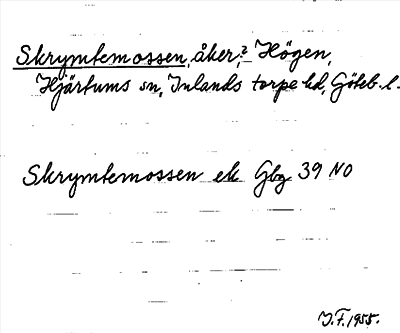 Skrymtemossen, åker,? Högen,
Hjärtums sn, Inlands torpe hd, Göteb. l.
Skrymtemossen ek Gbg 39 NO
J.F. 1955.